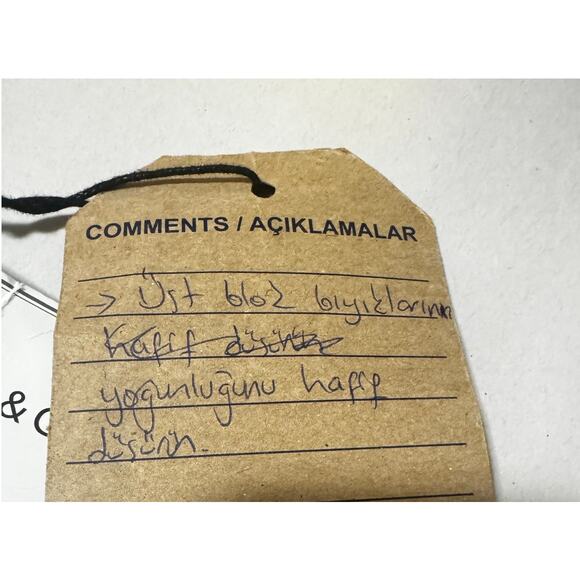 COMMENTS / AÇIKLAMALAR
→ Üst blok bıyıklarının
hafif düşürün
yoğunluğunu hafif
düşürün.
&